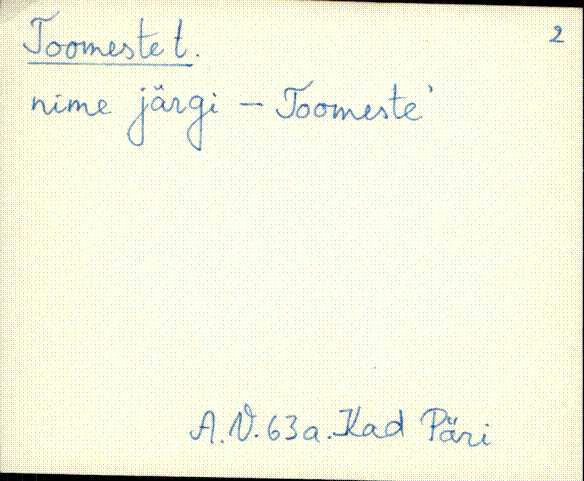 Toomeste t. 2
nime järgi – Toomeste'
A.V. 63a. Kad Päri